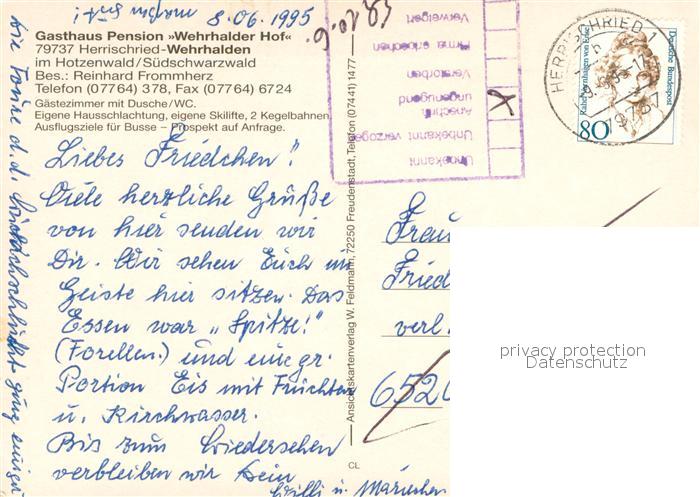 8.06.1995
Gasthaus Pension »Wehrhalder Hof«
79737 Herrischried-Wehrhalden
im Hotzenwald/Südschwarzwald
Bes.: Reinhard Frommherz
Telefon (07764) 378, Fax (07764) 6724
Gästezimmer mit Dusche/WC.
Eigene Hausschlachtung, eigene Skilifte, 2 Kegelbahnen.
Ausflugsziele für Busse – Prospekt auf Anfrage.
Liebes Friedchen!
Viele herzliche Grüße
von hier senden wir
Dir. Wir sehen Euch im
Geiste hier sitzen. Das
Essen war „Spitze!"
(Forellen.) und eine gr.
Portion Eis mit Früchten
u. Kirchwasser.
Bis zum Wiedersehen
verbleiben wir Dein
Willi u. Mariechen
Die Tour d. d.
ging
Ansichtskartenverlag W. Feldmann, 72250 Freudenstadt, Telefon (07441) 1477
CL
Verweigert
Firma erloschen
Verstorben
Anschrift ungenügend
Unbekannt verzogen
Unbekannt
X
HERRISCHRIED 1
79737
Deutsche Bundespost
Rahel Varnhagen von Ense
80
Frau
Fried
verl.
6520
privacy protection
Datenschutz